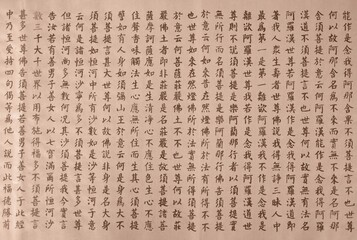 能作是念我得阿那含果不須菩提言不也世尊
何以故阿那含名為不來而實無不來是故名阿那
含須菩提於意云何阿羅漢能作是念我得阿羅
漢道不須菩提言不也世尊何以故實無有法名
阿羅漢世尊若阿羅漢作是念我得阿羅漢道即為
著我人眾生壽者世尊佛說我得無諍三昧人中
最為第一是第一離欲阿羅漢我不作是念我是
離欲阿羅漢世尊我若作是念我得阿羅漢道世
尊則不說須菩提是樂阿蘭那行者以須菩提實
無所行而名須菩提是樂阿蘭那行佛告須菩提
於意云何如來昔在然燈佛所於法有所得不世
尊如來在然燈佛所於法實無所得須菩提
於意云何菩薩莊嚴佛土不不也世尊何以故莊
嚴佛土者即非莊嚴是名莊嚴是故須菩提諸菩
薩摩訶薩應如是生清淨心不應住色生心不應
住聲香味觸法生心應無所住而生其心須菩提
譬如有人身如須彌山王於意云何是身為大不
須菩提言甚大世尊何以故佛說非身是名大身
須菩提如恒河中所有沙數如是沙等恒河於意
云何是諸恒河沙寧為多不須菩提言甚多世尊
但諸恒河尚多無數何況其沙須菩提我今實言
告汝若有善男子善女人以七寶滿爾所恒河沙
數三千大千世界以用布施得福多不須菩提言
甚多世尊佛告須菩提若善男子善女人於此經
中乃至受持四句偈等為他人說而此福德勝前